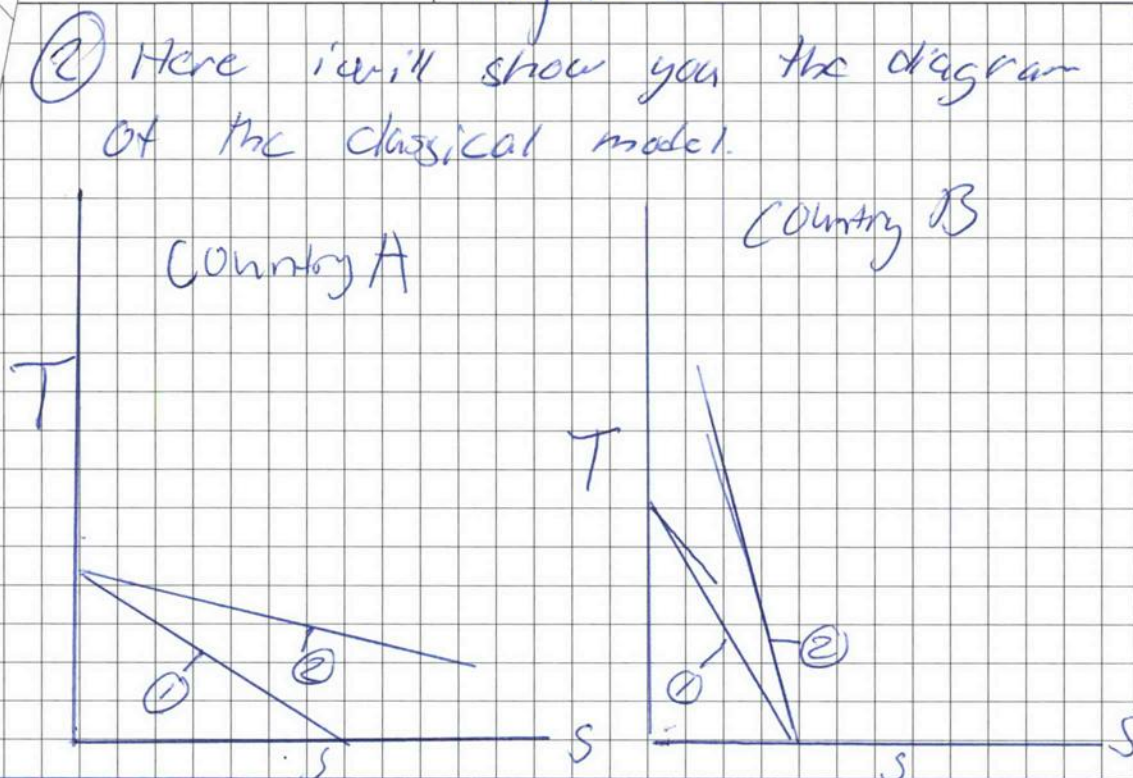 ② Here i will show you the diagram
of the classical model.
Country A
Country B
T
T
①
②
①
②
S
S
S
S